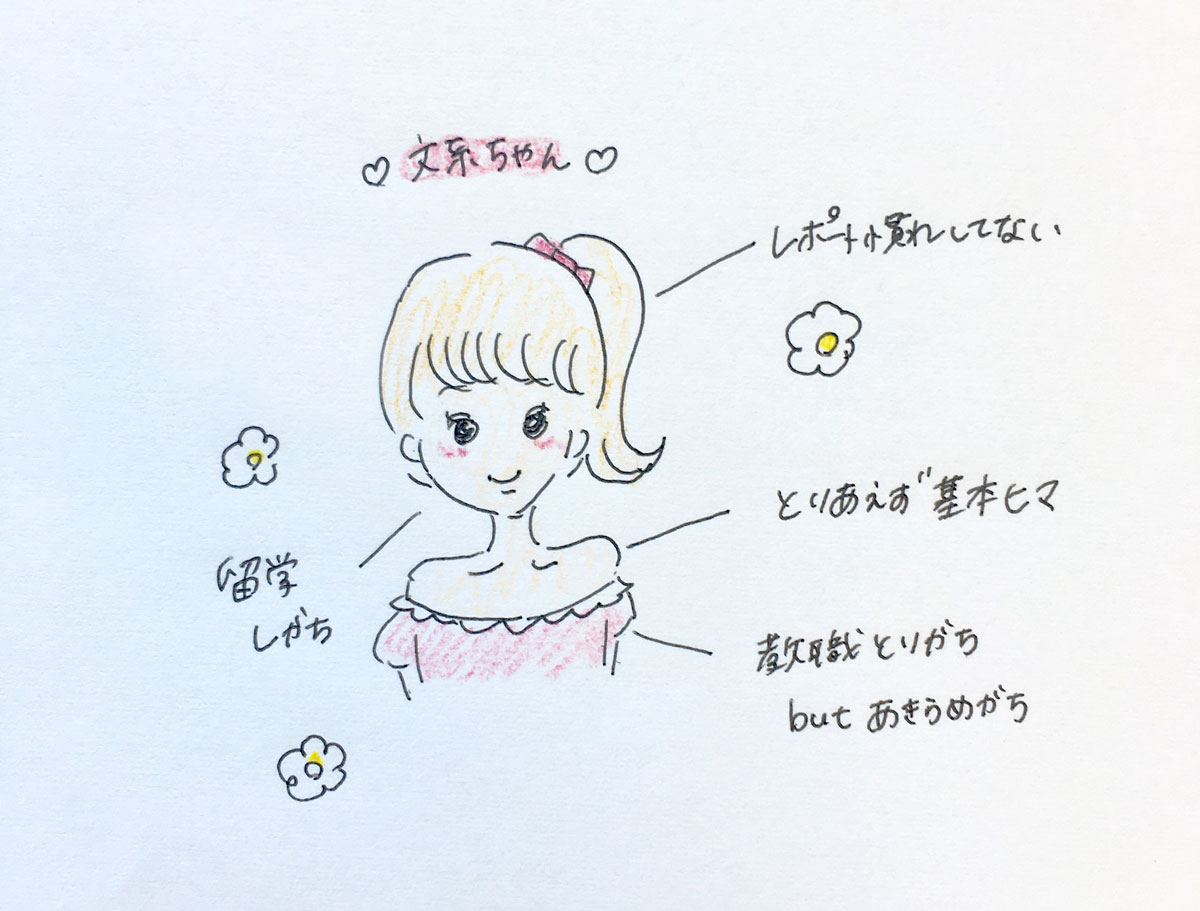 ♡ 文系ちゃん ♡
レポート慣れしてない
とりあえず基本ヒマ
留学
しがち
教職とりがち
but あきらめがち